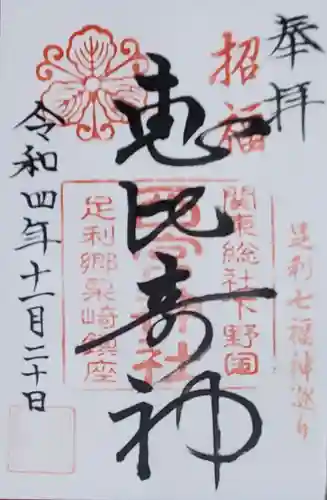 奉拝
招福
恵比寿神
足利七福神巡り
関東総社下野国
西宮神社
足利郷泉崎鎮座
令和四年十一月二十日